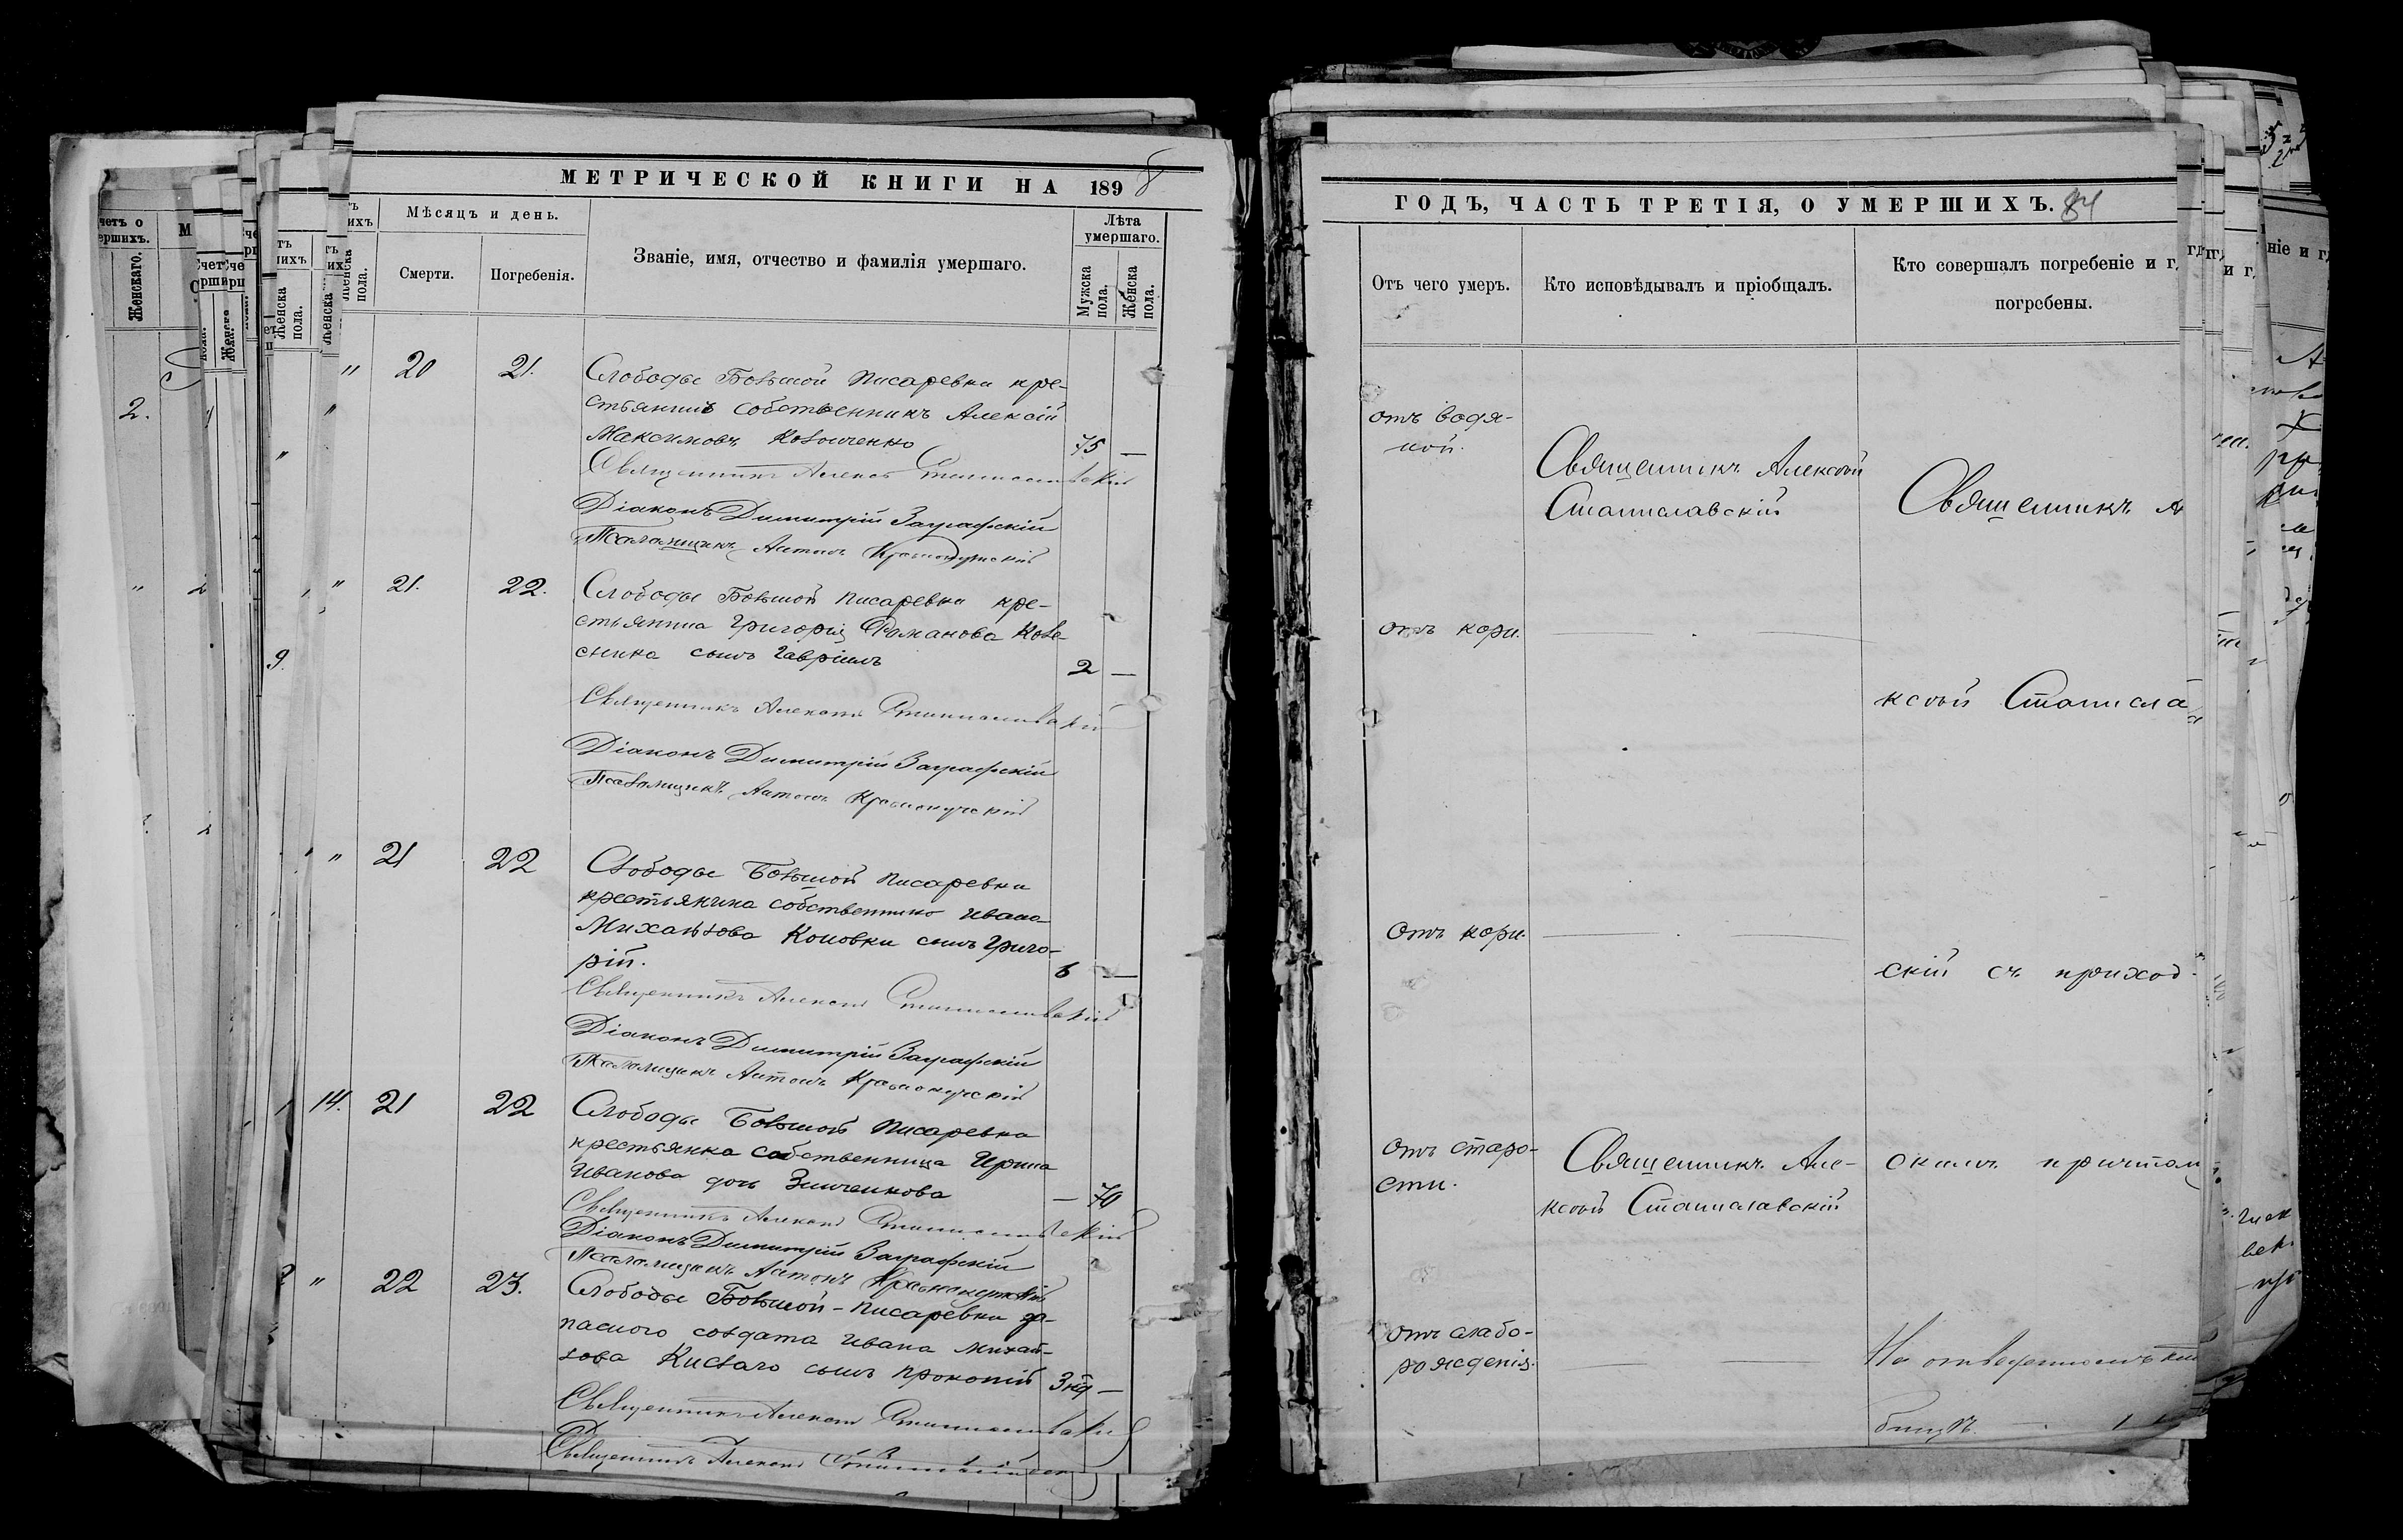 МЕТРИЧЕСКОЙ КНИГИ НА 1898
Мѣсяцъ и день.
Смерти.
Погребенія.
Званіе, имя, отчество и фамилія умершаго.
Лѣта умершаго.
Мужска пола.
Женска пола.
" 20 21.
Слободы Большой Писаревки кре-
стьянинъ собственникъ Алексій
Максимовъ 75 —
Священникъ Алексѣй Станиславскій
Діаконъ Димитрій Заграфскій
Псаломщикъ Антонъ Краснокутскій
" 21. 22.
Слободы Большой Писаревки кре-
стьянина Григорія Романова Коле-
сника сынъ Гавріилъ 2 —
Священникъ Алексѣй Станиславскій
Діаконъ Димитрій Заграфскій
Псаломщикъ Антонъ Краснокутскій
" 21 22
Слободы Большой Писаревки
крестьянина собственника Ивана
Михайлова Коновки сынъ Григо-
рій. 6 —
Священникъ Алексѣй Станиславскій
Діаконъ Димитрій Заграфскій
Псаломщикъ Антонъ Краснокутскій
14. 21 22
Слободы Большой Писаревки
крестьянка собственница Ирина
Иванова дочь Зинченкова — 70
Священникъ Алексѣй Станиславскій
Діаконъ Димитрій Заграфскій
Псаломщикъ Антонъ Краснокутскій
" 22 23.
Слободы Большой-Писаревки за-
паснаго солдата Ивана Михай-
лова Кислаго сынъ Прокопій 3 нд —
Священникъ Алексѣй Станиславскій
Священникъ Алексѣй
ГОДЪ, ЧАСТЬ ТРЕТІЯ, О УМЕРШИХЪ. 84
Отъ чего умеръ.
Кто исповѣдывалъ и пріобщалъ.
Кто совершалъ погребеніе и г
погребены.
отъ водя-
ной.
Священникъ Алексѣй
Станиславскій
Священникъ А
отъ кори.
ксѣй Станисла
Отъ кори.
скій съ приход
Отъ старо-
сти.
Священникъ Але-
ксѣй Станиславскій
скимъ причтомъ
отъ слабо-
рожденія.
На отведенномъ кла
бищѣ.